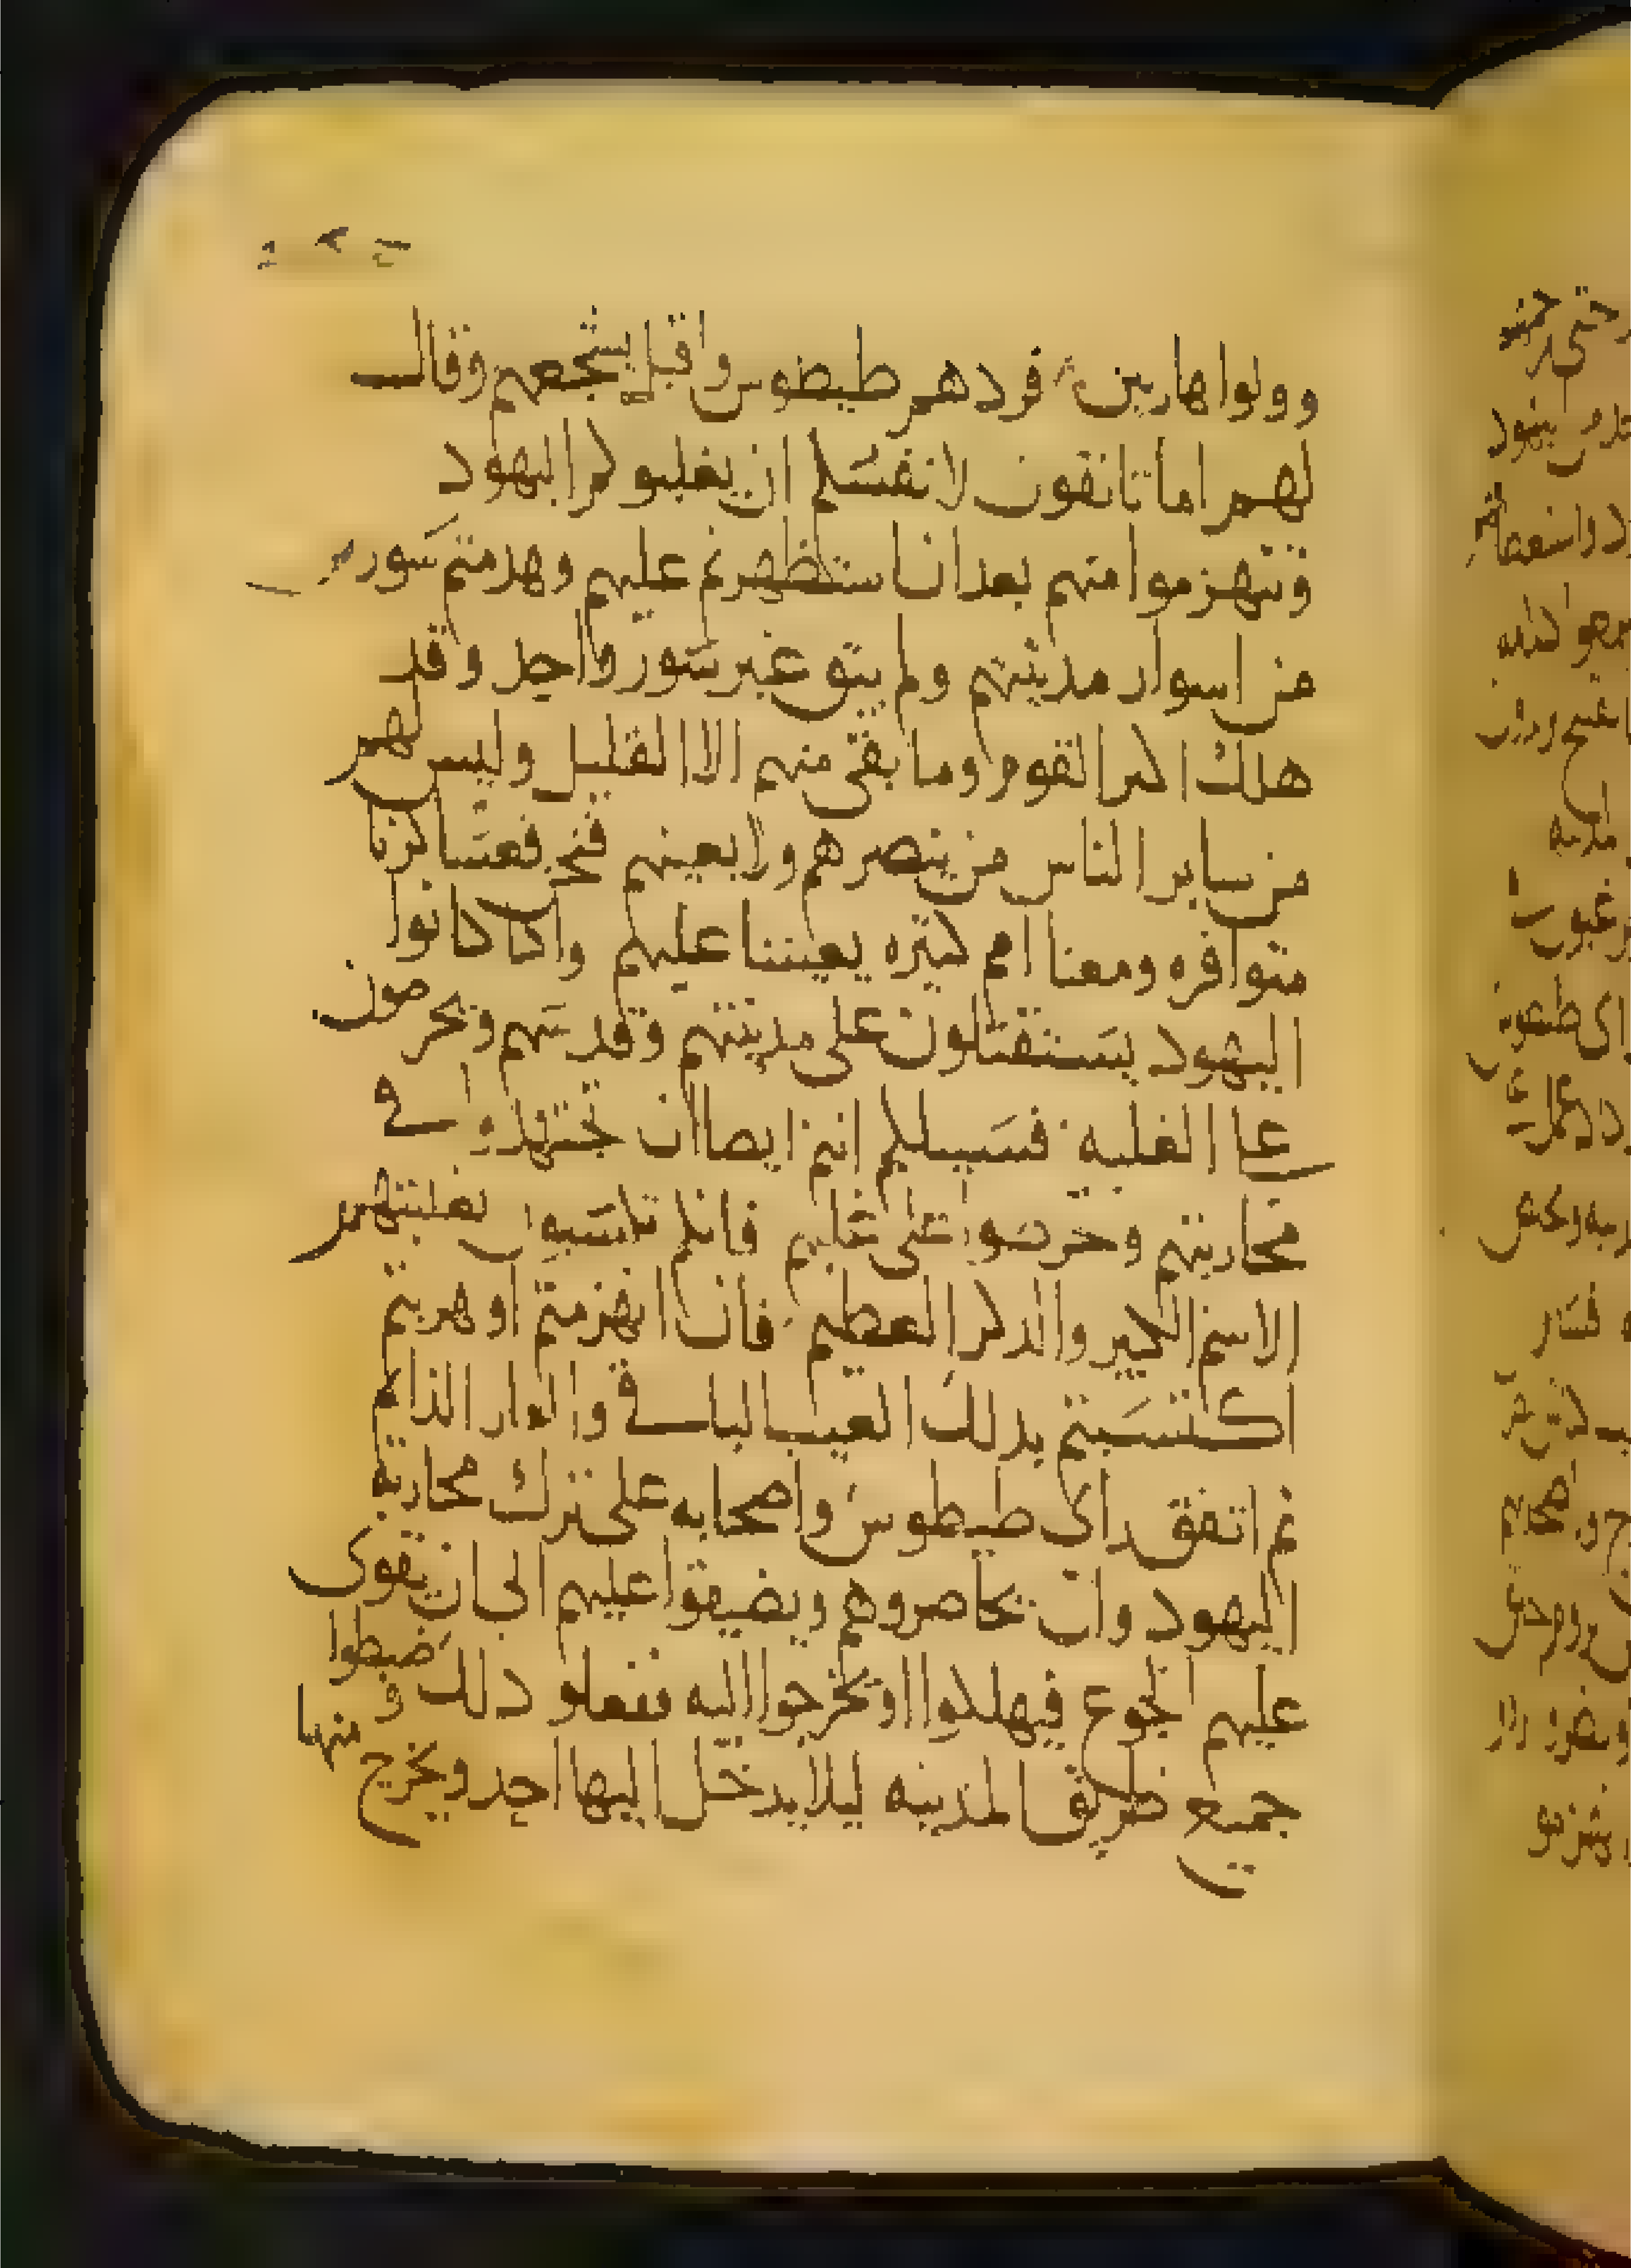 وولوا هاربين فردهم طيطوس واقبل يشجعهم وقال
لهم اما تانفون لانفسكم ان يغلبوكم اليهود
وتنهزموا منهم بعد ان استظهرتم عليهم وهدمتم سورين
من اسوار مدينتهم ولم يبق غير سور واحد وقد
هلك اكثر القوم وما بقى منهم الا القليل وليس لهم
من ساير الناس من ينصرهم ولا يعينهم فنحن فعساكرنا
متوافره ومعنا امم كثيره يعيننا عليهم واذا كانوا
اليهود يستقتلون على مدينتهم وقدسهم ويحرصون
على الغلبه فسبيلكم انتم ايضا ان تجتهدوا في
محاربتهم وتحرصوا على غلبهم فانكم تكتسبوا بغلبتهم
الاسم الكبير والذكر العظيم فان انهزمتم او هربتم
اكتسبتم بذلك العيب الباقي والعار الدايم
ثم اتفق راى طيطوس واصحابه على ترك محاربة
اليهود وان يحاصروهم ويضيقوا عليهم الى ان يقوى
عليهم الجوع فيهلكوا او يخرجوا اليه ففعلو ذلك وضبطوا
جميع طرق المدينه ليلا يدخل اليها احد ويخرج منها